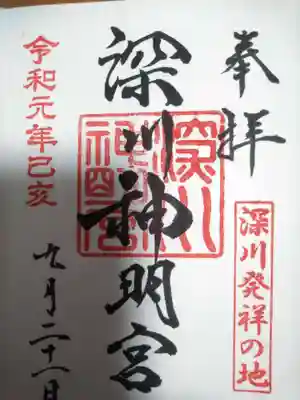 奉拝
深川発祥の地
深川神明宮
深川神明宮
令和元年己亥
九月二十一日